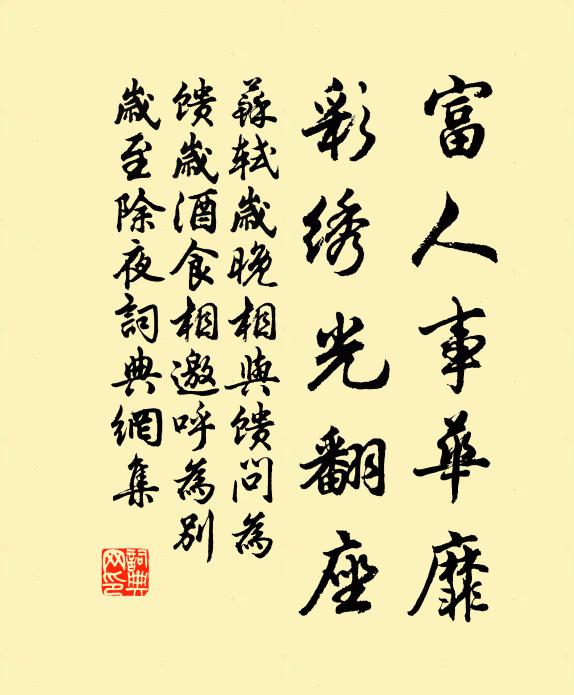 富人事華靡
彩绣光翻座
蘇軾歲晚相與馈问為
馈歲酒食相邀呼為別
歲至除夜詞典網集
詞典网印